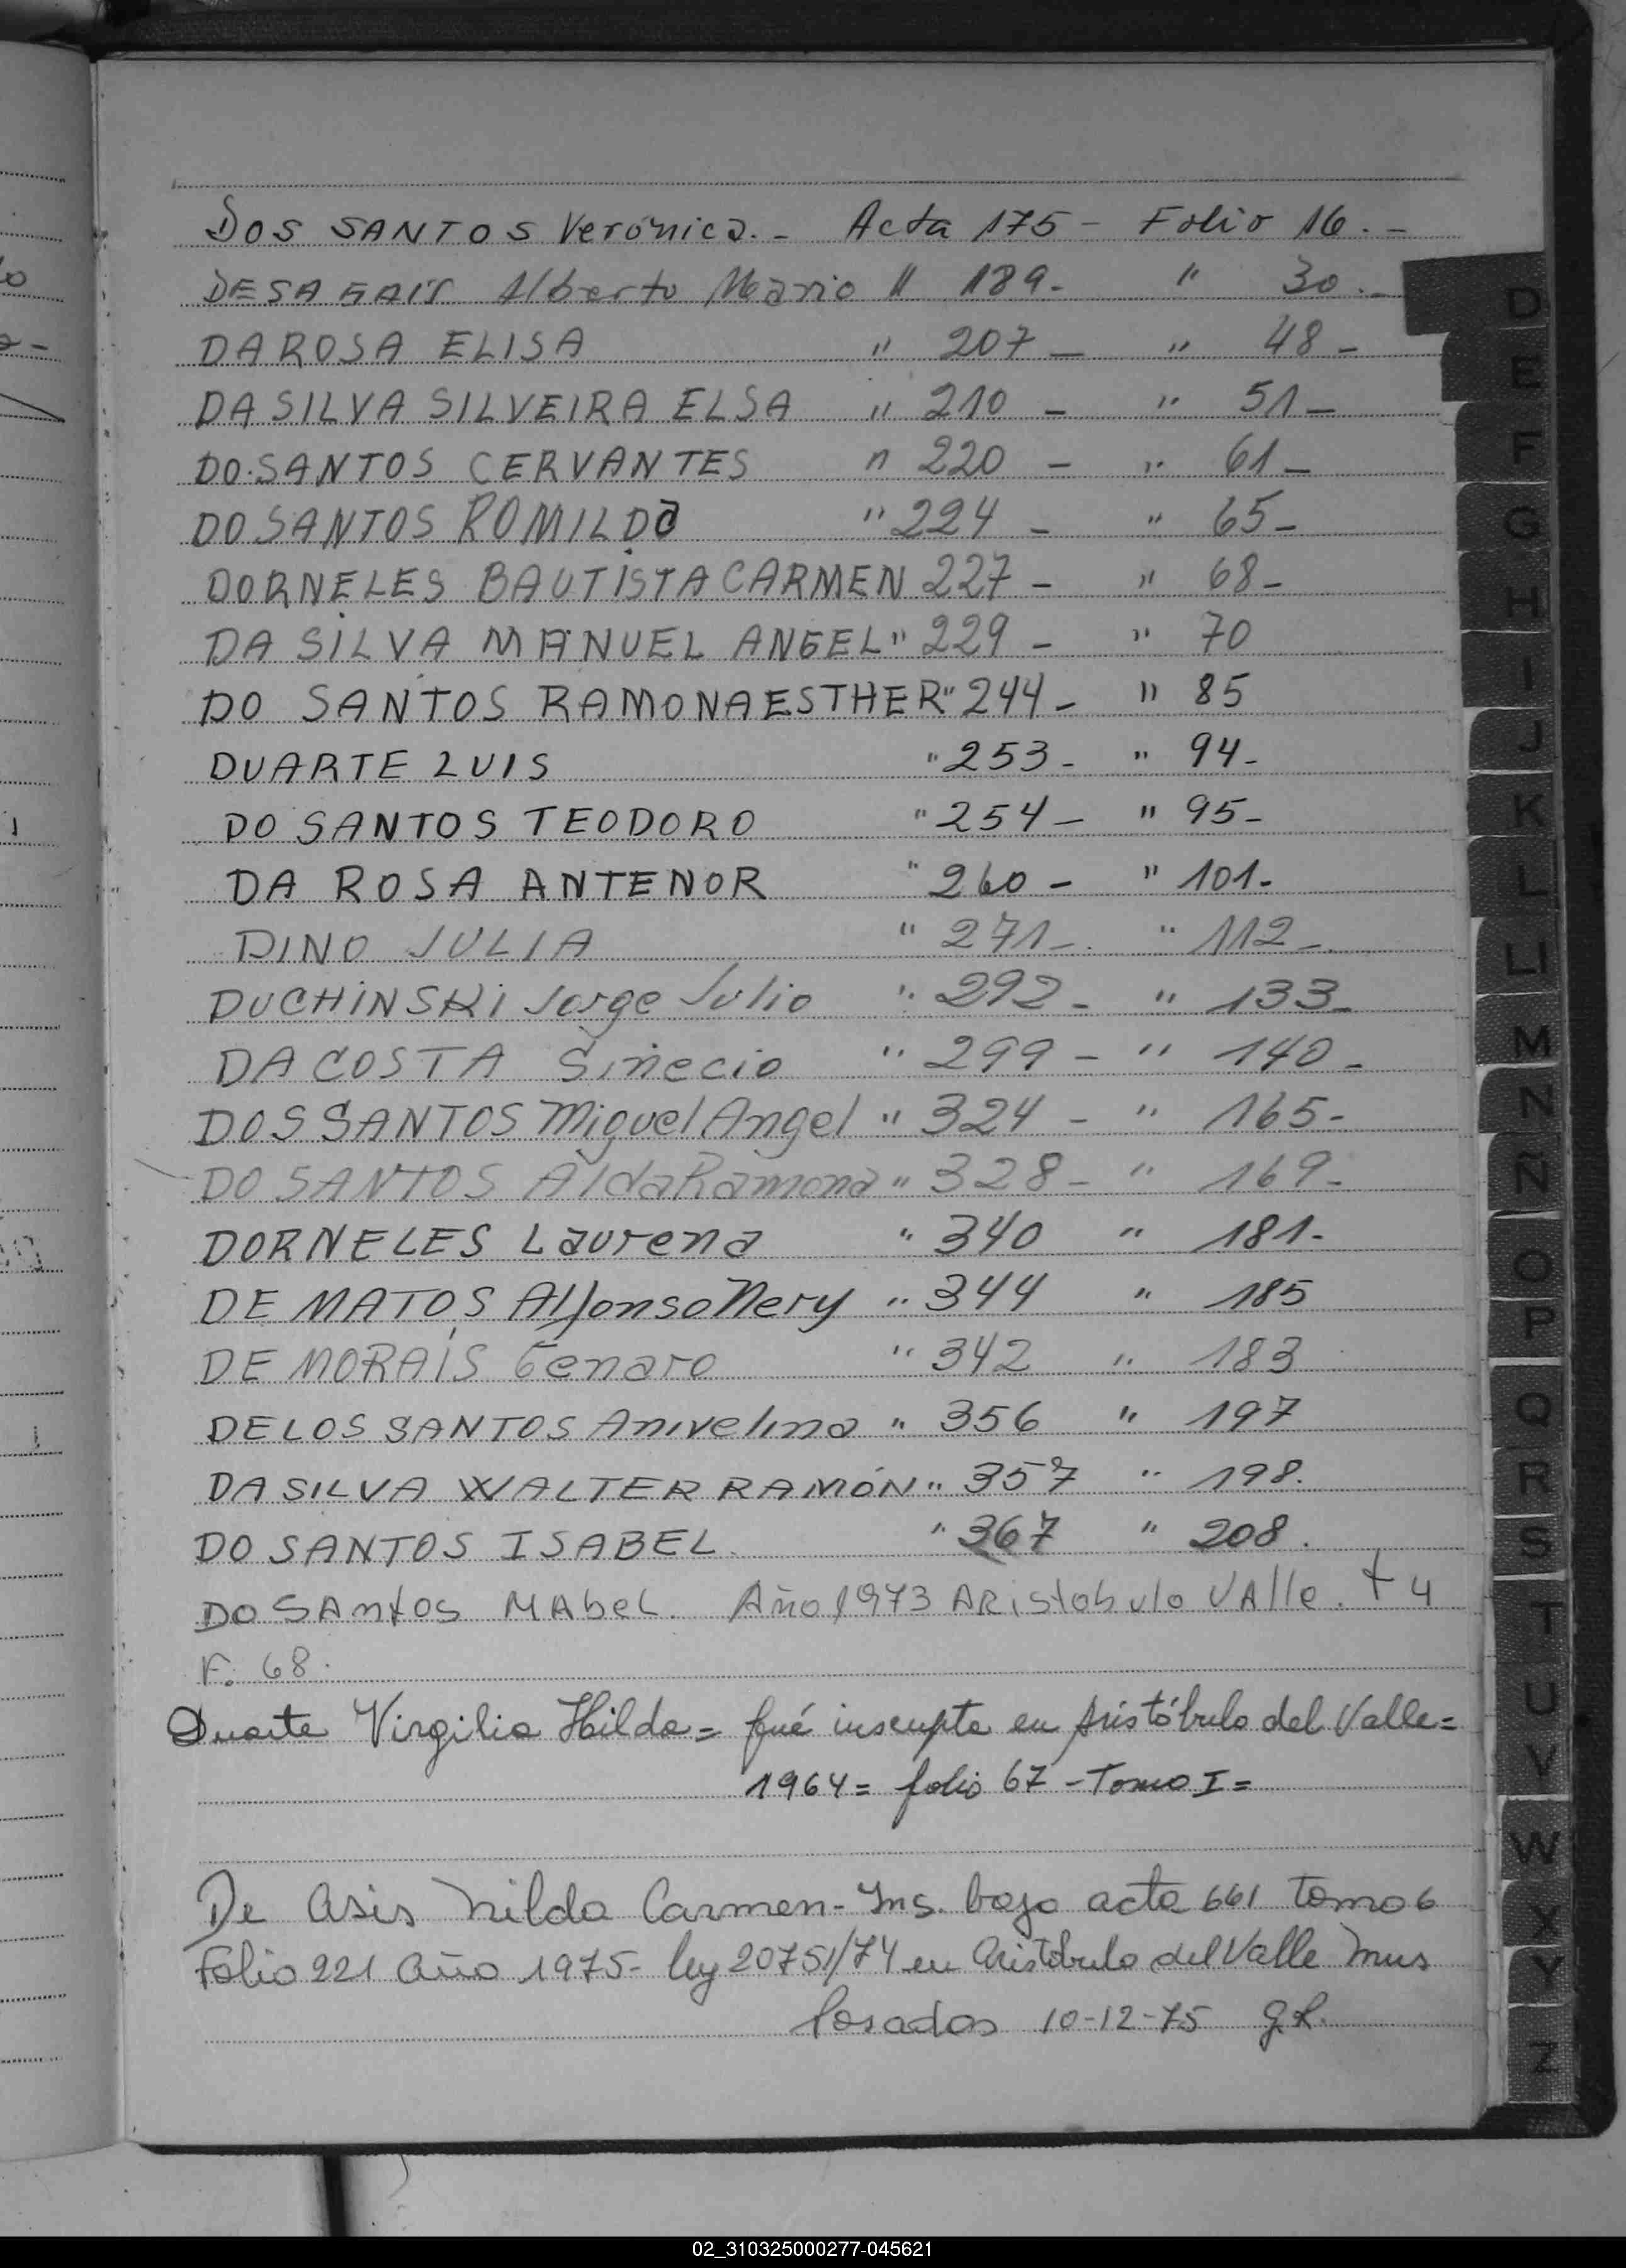 DOS SANTOS Verónica. - Acta 175 - Folio 16. -
DESAGAIS Alberto Mario " 189 - " 30. -
DA ROSA ELISA " 207 - " 48 -
DA SILVA SILVEIRA ELSA " 210 - " 51 -
DO SANTOS CERVANTES " 220 - " 61 -
DO SANTOS ROMILDO " 224 - " 65 -
DORNELES BAUTISTA CARMEN 227 - " 68 -
DA SILVA MANUEL ANGEL " 229 - " 70
DO SANTOS RAMONA ESTHER " 244 - " 85
DUARTE LUIS " 253 - " 94 -
DO SANTOS TEODORO " 254 - " 95 -
DA ROSA ANTENOR " 260 - " 101 -
DINO JULIA " 271 - " 112 -
DUCHINSKI Jorge Julio " 292 - " 133 -
DA COSTA Sinecio " 299 - " 140 -
DOS SANTOS Miguel Angel " 324 - " 165 -
DO SANTOS Alda Ramona " 328 - " 169 -
DORNELES Laurena " 340 " 181 -
DE MATOS Alfonso Nery " 344 " 185
DE MORAIS Genaro " 342 " 183
DE LOS SANTOS Anivelina " 356 " 197
DA SILVA WALTER RAMÓN " 357 " 198.
DO SANTOS ISABEL. " 367 " 208.
DO SANTOS MABEL. Año 1973 ARistobulo VAlle. T 4
F. 68.
Duarte Virgilia Hilda = fué inscripta en Aristóbulo del Valle =
1964 = folio 67 - Tomo I =
De Asis Nilda Carmen - Ins. bajo acta 661 tomo 6
Folio 221 año 1975 - ley 20751/74 en Aristóbulo del Valle Mns
Posadas 10-12-75 G.R.
D
E
F
G
H
I
J
K
L
LL
M
N
Ñ
O
P
Q
R
S
T
U
V
W
X
Y
Z
02_310325000277-045621